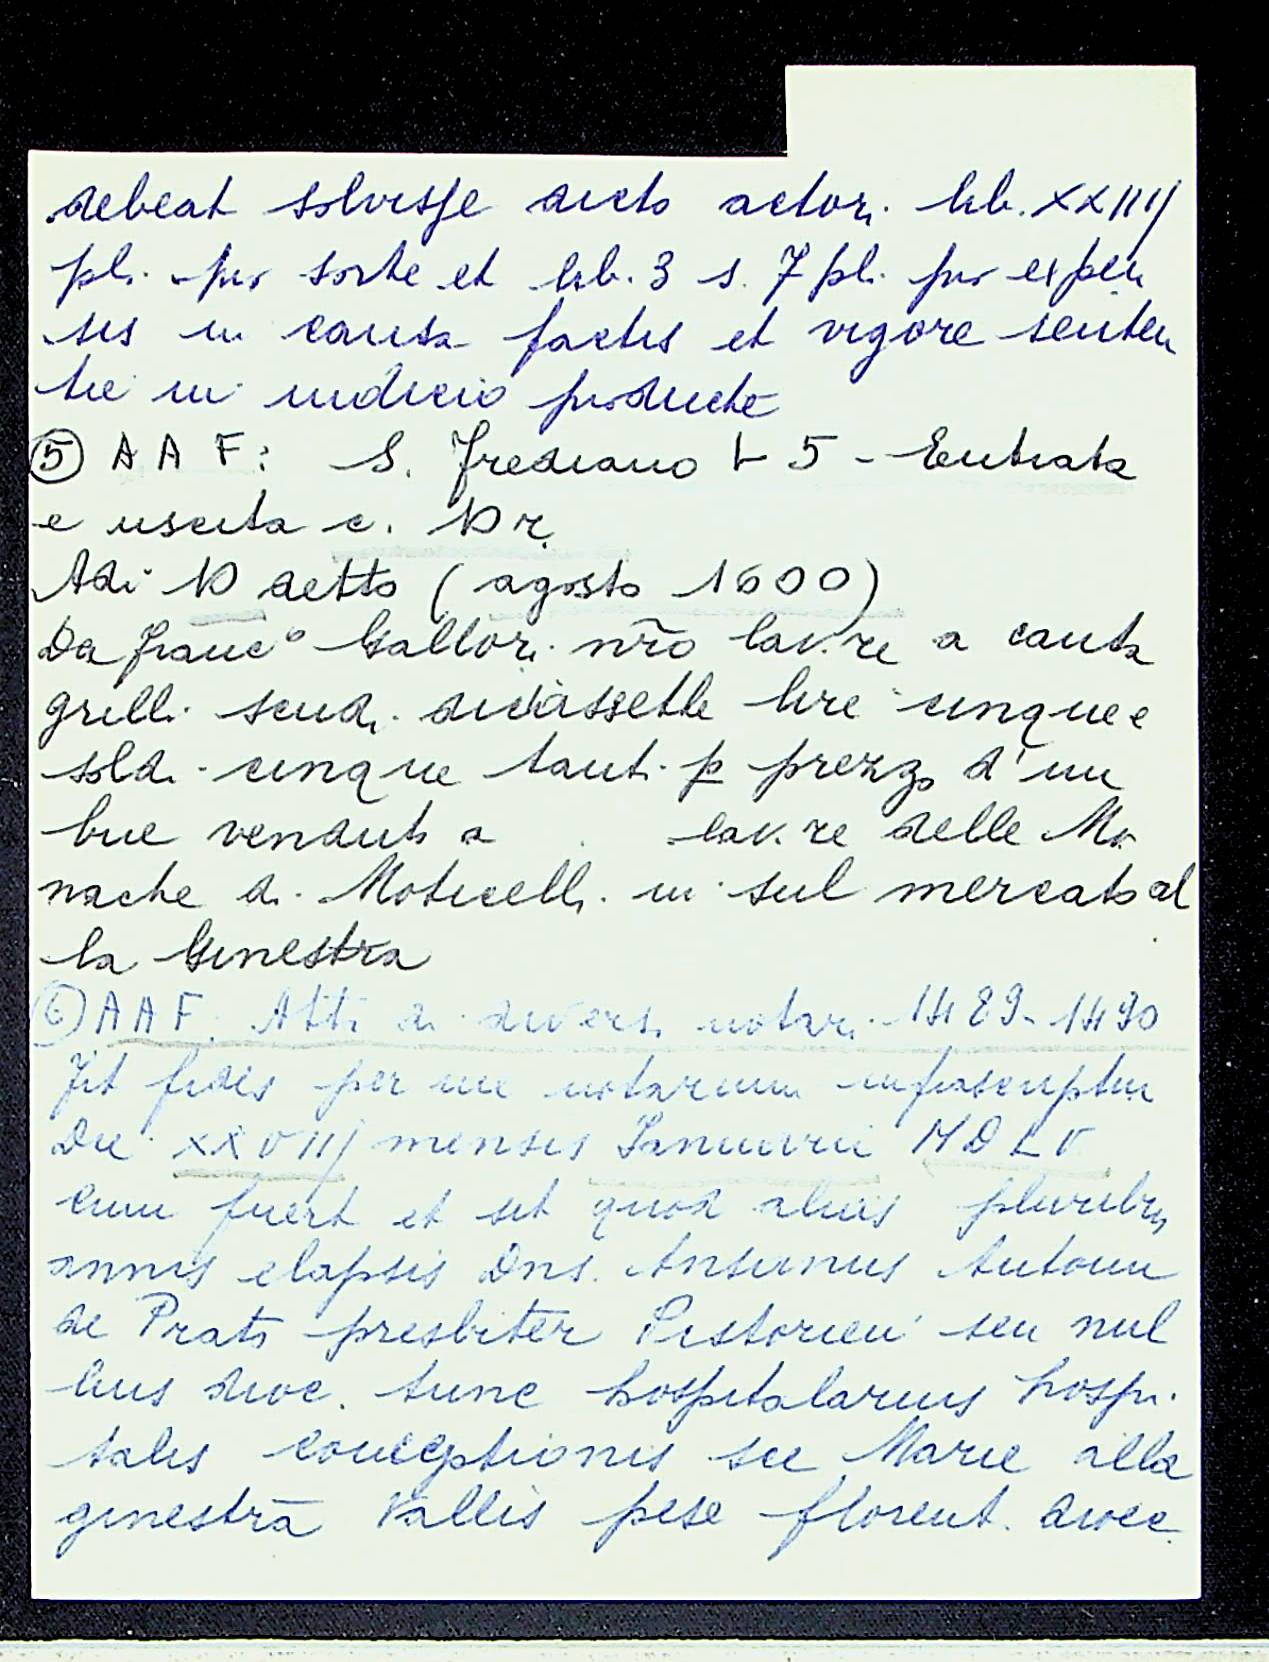 debeat solvisse dicto actori lib. XXIIIJ
pli. pro sorte et lib. 3 s. 7 pli. pro expen
sis in causa factis et vigore senten
tie in iudicio producte
⑤ A A F: S. Frediano 5 - Entrata
e uscita c. 10 r.
Adi 10 detto (agosto 1600)
Da Franc° Gallori nr̃o lav.re a canta
grilli scudi diciassette lire cinque e
soldi cinque tanti p prezzo d'un
bue venduto a lav.re delle Mo
nache di Moticelli in sul mercato al
la Ginestra
⑥ A A F. Atti di diversi notari 1489-1490
Fit fides per me notarium infrascriptum
Die XXVIIJ mensis Januarii MDLV
cum fuerit et sit quod aliis pluribus
annis elapsis Dns. Antonii
de Prato presbiter Pistorien seu nul
lius dioc. tunc hospitalarius hospi.
talis conceptionis sce Marie alla
ginestra Vallis pese florent. dioec.